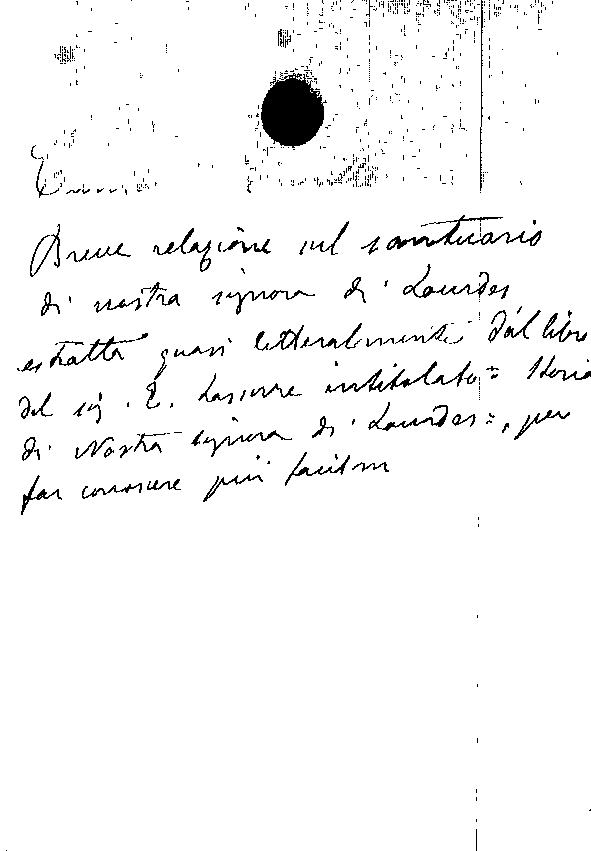 Breve relazione sul santuario
di nostra signora di Lourdes
estratta quasi letteralmente dal libro
del sig. E. Lasserre intitolato = Storia
di Nostra signora di Lourdes =, per
far conoscere più facilm